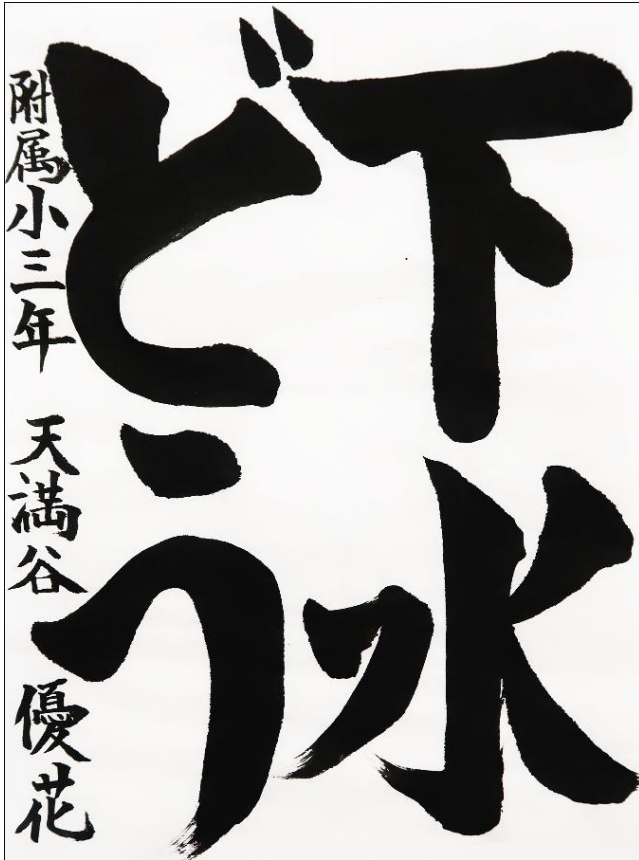 下水
どう
附属小三年 天満谷 優花